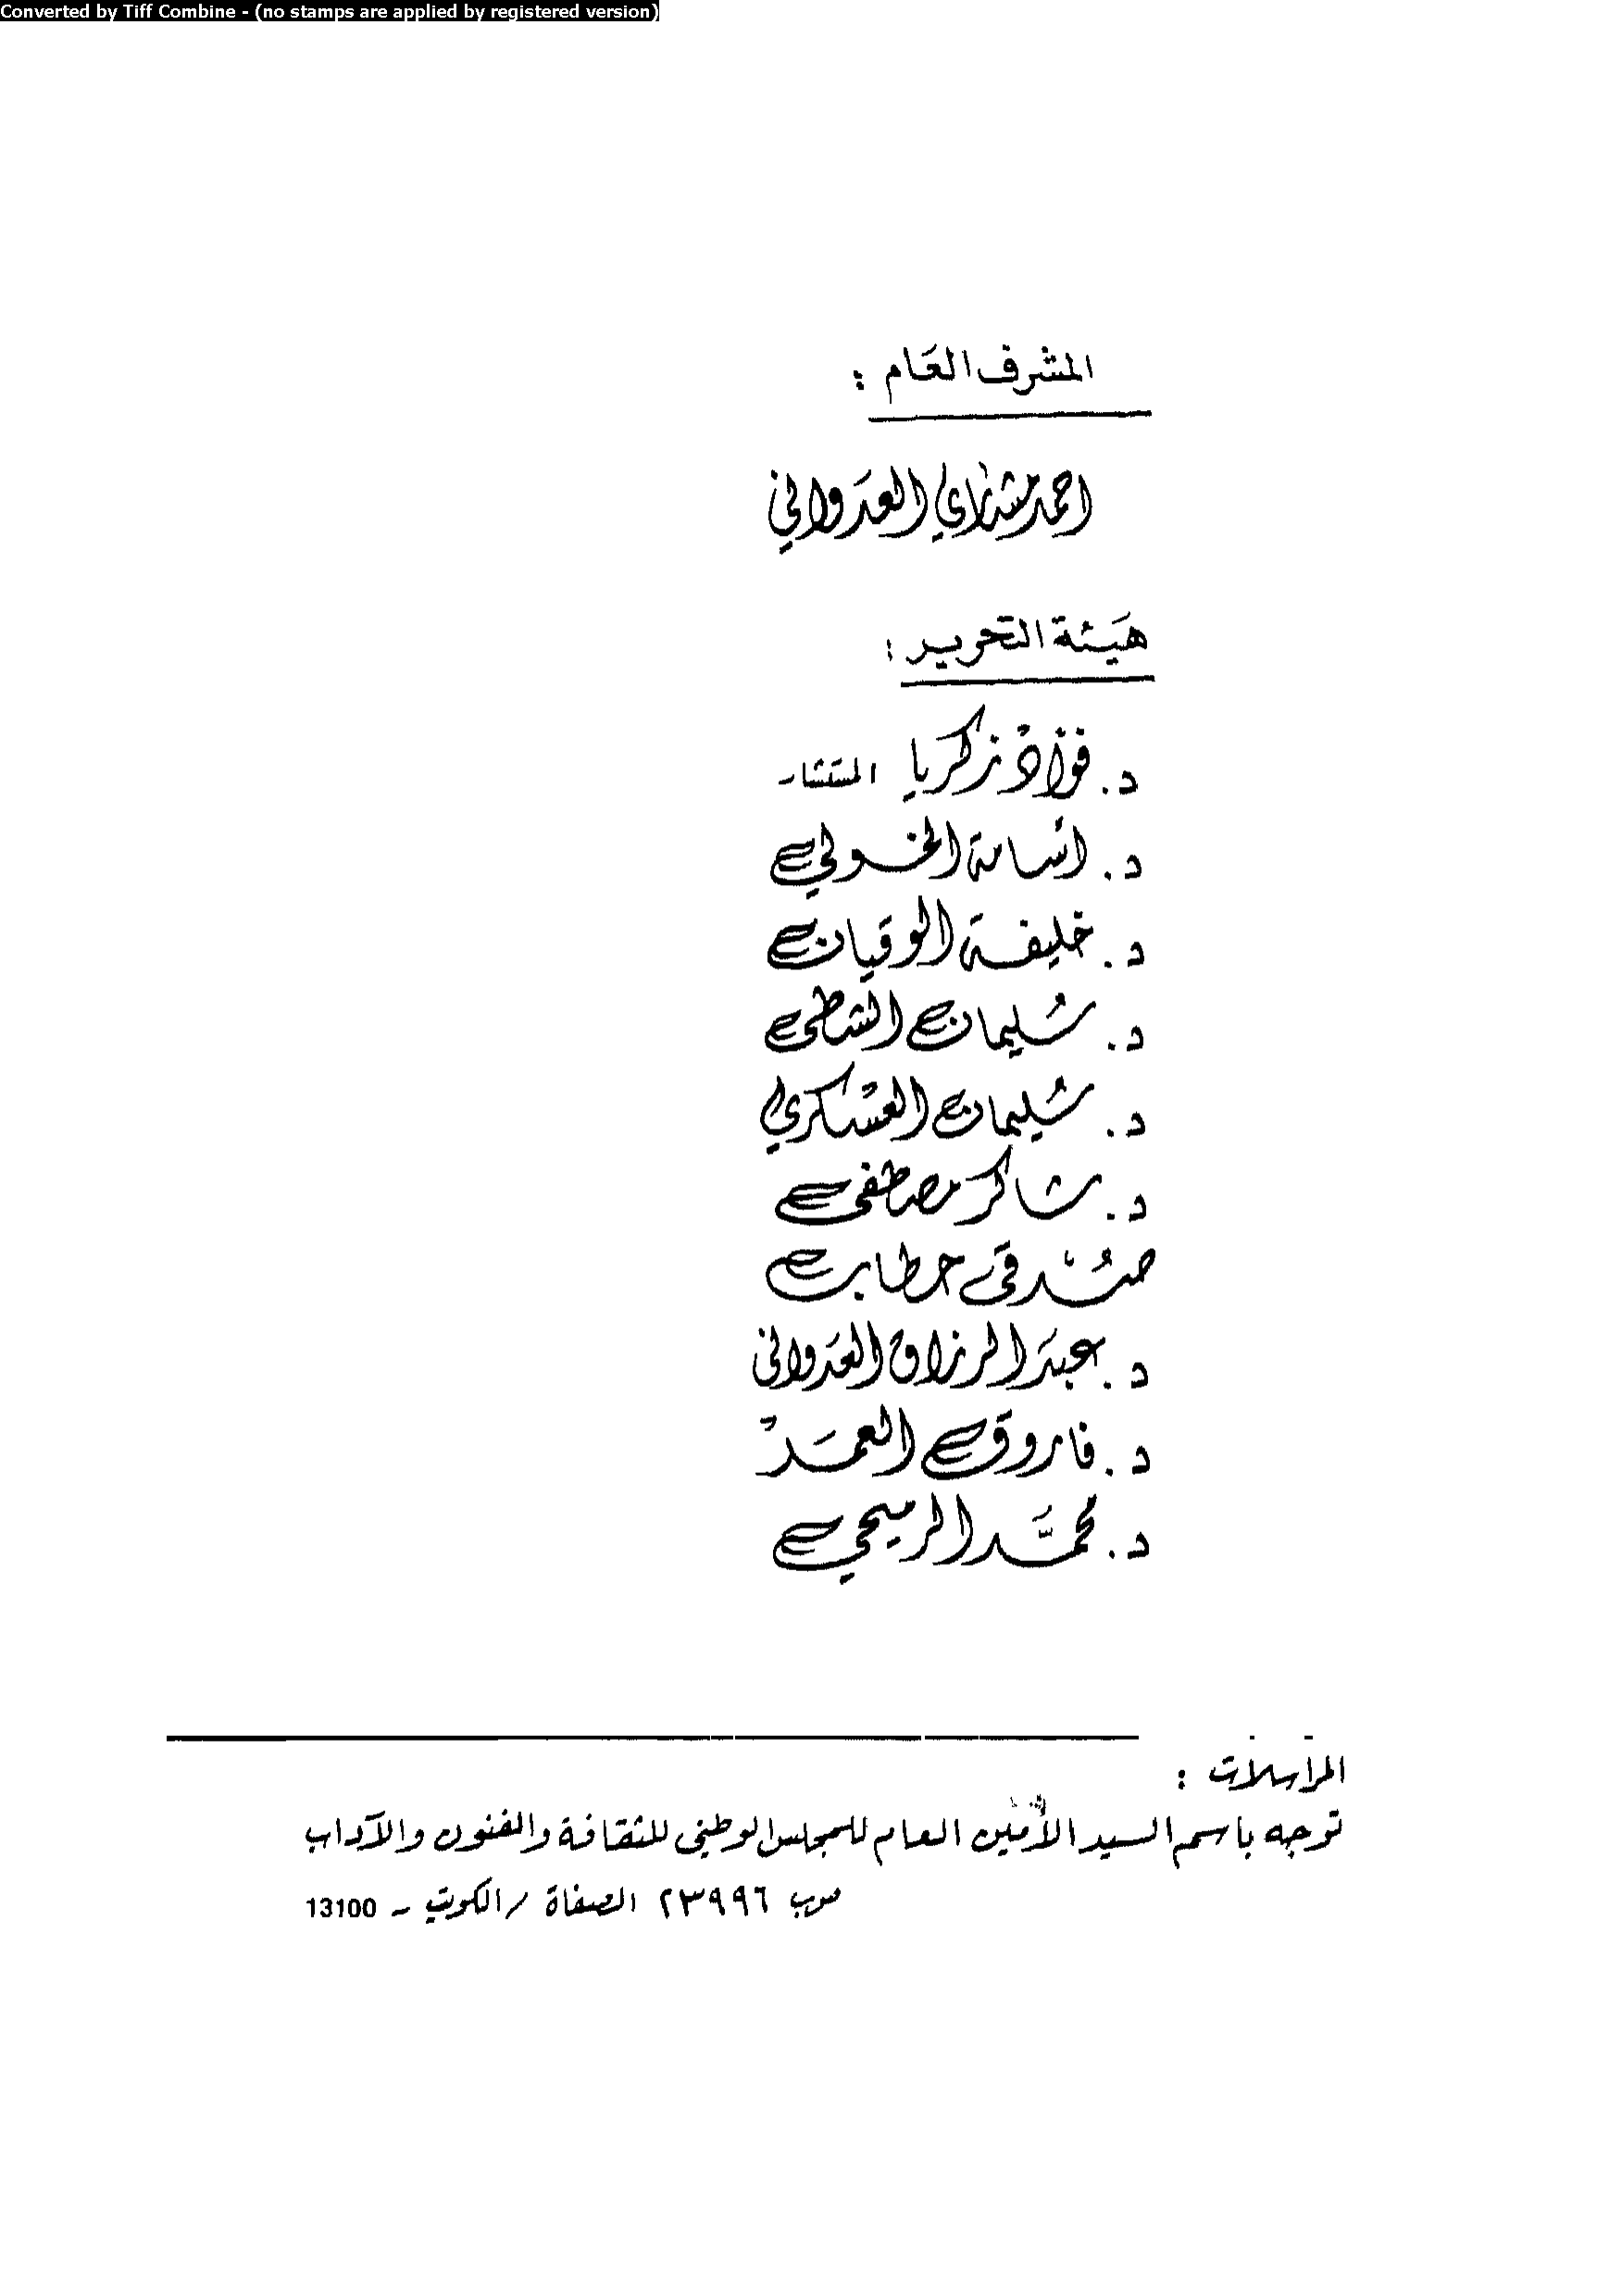 Converted by Tiff Combine - (no stamps are applied by registered version)
المشرف العام :
احمد مشاري العدواني
هيئة التحرير :
د. فؤاد زكريا المستشار
د. أسامة الخولي
د. خليفة الوقيان
د. سليمان الشطي
د. سليمان العسكري
د. شاكر مصطفى
صدقي حطاب
د. عبد الرزاق العدواني
د. فاروق العمر
د. محمد الرميحي
المراسلات :
توجه باسم السيد الأمين العام للمجلس الوطني للثقافة والفنون والآداب
ص ب ٢٣٩٩٦ الصفاة / الكويت - 13100